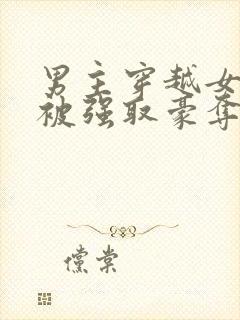 男主穿越女
被强取豪夺
儻棠